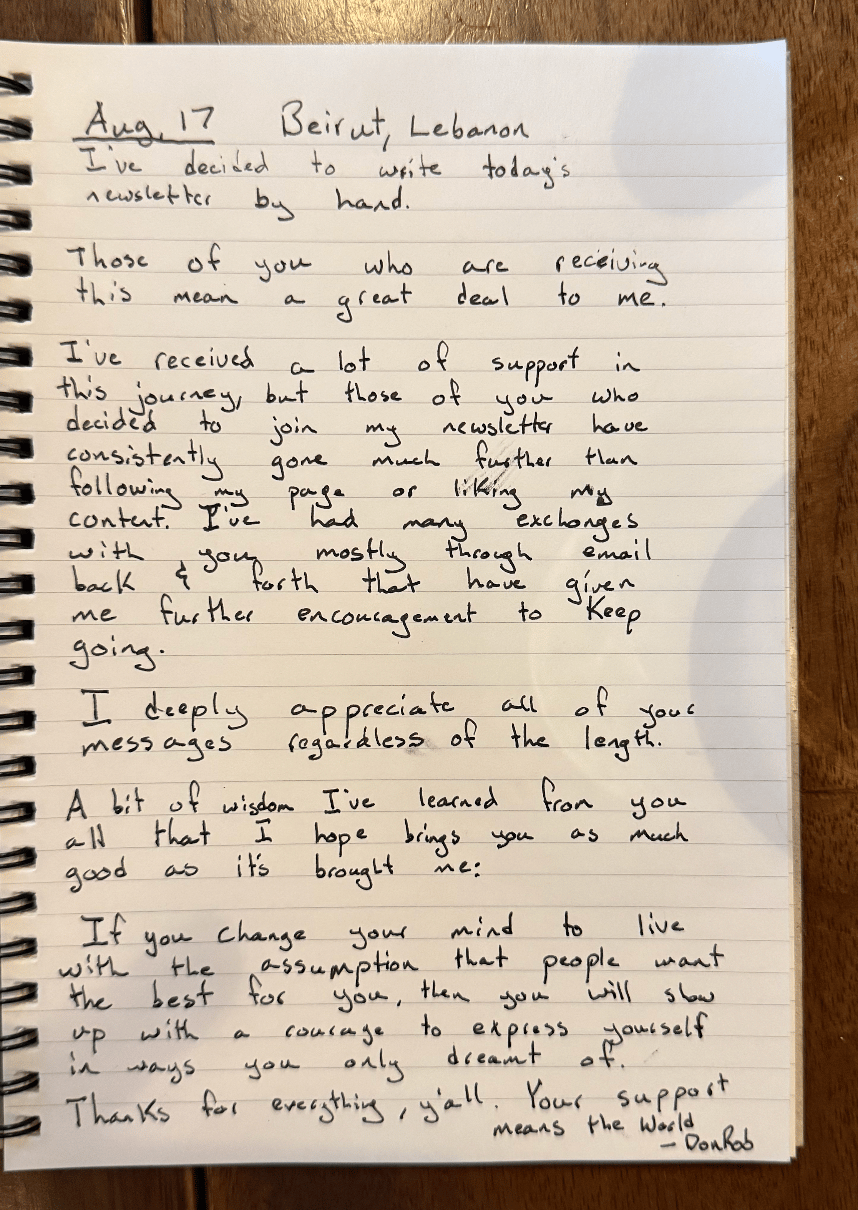 Aug, 17 Beirut, Lebanon
I've decided to write today's
newsletter by hand.
Those of you who are receiving
this mean a great deal to me.
I've received a lot of support in
this journey, but those of you who
decided to join my newsletter have
consistently gone much further than
following my page or liking my
content. I've had many exchanges
with you mostly through email
back & forth that have given
me further encouragement to Keep
going.
I deeply appreciate all of your
messages regardless of the length.
A bit of wisdom I've learned from you
all that I hope brings you as much
good as it's brought me:
If you change your mind to live
with the assumption that people want
the best for you, then you will slow
up with a courage to express yourself
in ways you only dreamt of.
Thanks for everything, y'all. Your support
means the World
- DonRob